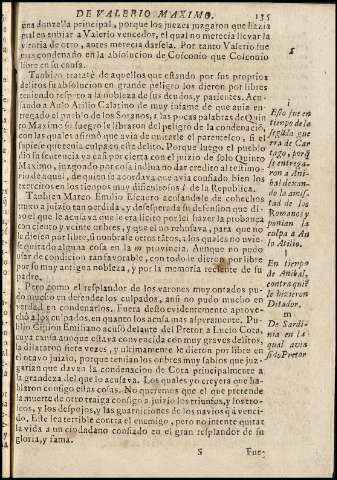 DE VALERIO MAXIMO. 135
una donzella principal, porque los juezes juzgaron que hazia
mal en enbiar a Valerio vencedor, el qual no merecia llevar la
vitoria de otro, antes merecia darsela. Por tanto Valerio fue
mas condenado en la absolucion de Cosconio que Cosconio
libre en su causa.
Tambien trataré de aquellos que estando por sus proprios
delitos su absolucion en grande peligro los dieron por libres
teniendo respeto a la nobleza de sus deudos, y parientes. Acu-
sando a Aulo Atilio Calatino de muy infame de que avia en-
tregado el pueblo de los Soranos, las pocas palabras de Quin
to Maximo su suegro le libraron del peligro de la condenació,
con las quales afirmó que avia de quitarle el parentesco, si el
supiesse que tenia culpa en este delito. Porque luego el pueblo
dio su sentencia va casi por cierto con el juizio de solo Quinto
Maximo, juzgando por cosa indina no dar credito al testimo-
rio de aquel, de quien se acordava que avia confiado bien los
exercitos en los tiempos muy dificultosos l de la Republica.
Tambien Marco Emilio Escauro acusandole de cohechos
truxo a juizio tan perdida, y desesperada su defension que di-
el que le acusava que le era licito por lei hazer la probança
con ciento y veinte onbres, y que el no rehusava, para que no
le diesen por libre, si nonbrase otros tātos, a los quales no uvie-
se quitado alguna cosa en la m provincia. Aunque no pudo
usar de condicion tan favorable, con todo le dieron por libre
por su muy antigua nobleza, y por la memoria reciente de su
padre.
Pero como el resplandor de los varones muy ontados pu-
do mucho en defender los culpados, ansi no pudo mucho en
verdad en condenarlos. Fuera desto evidentemente aprove-
chó a los culpados, en quanto los acusa mas asperamente. Pu-
blio Cipion Emiliano acusó delante del Pretor a Lucio Cota,
cuya causa aunque estava convencida con muy graves delitos,
la dilataron siete vezes, y ultimamente le dieron por libre en
el otavo juizio, porque tenian los onbres muy sabios que juz-
garian que davan la condenacion de Cota principalmente a
la grandeza del que lo acusava. Los quales yo creyera que ha-
blaron consigo estas cosas. No queremos que el que pretende
la muerte de otro traiga consigo a juizio los triunfos, y los tro-
feos, y los despojos, y las guarniciones de los navios q̃ à venci-
do. Este sea terrible contra el enemigo, pero no intente quitar
la vida a un ciudadano confiado en el gran resplandor de su
gloria, y fama.
S Fue-
i
Esto fue en
tiempo de la
segũda gue
rra de Car
tago, porq̃
se entrega-
ron a Ani-
bal dexan-
do la amis-
tad de los
Romanos y
ponian la
culpa a Au
lo Atilio.
l
En tiempo
de Anibal,
contra quiẽ
le hizieron
Ditador.
m
De Sardi-
nia en la
qual avia
sido Pretor